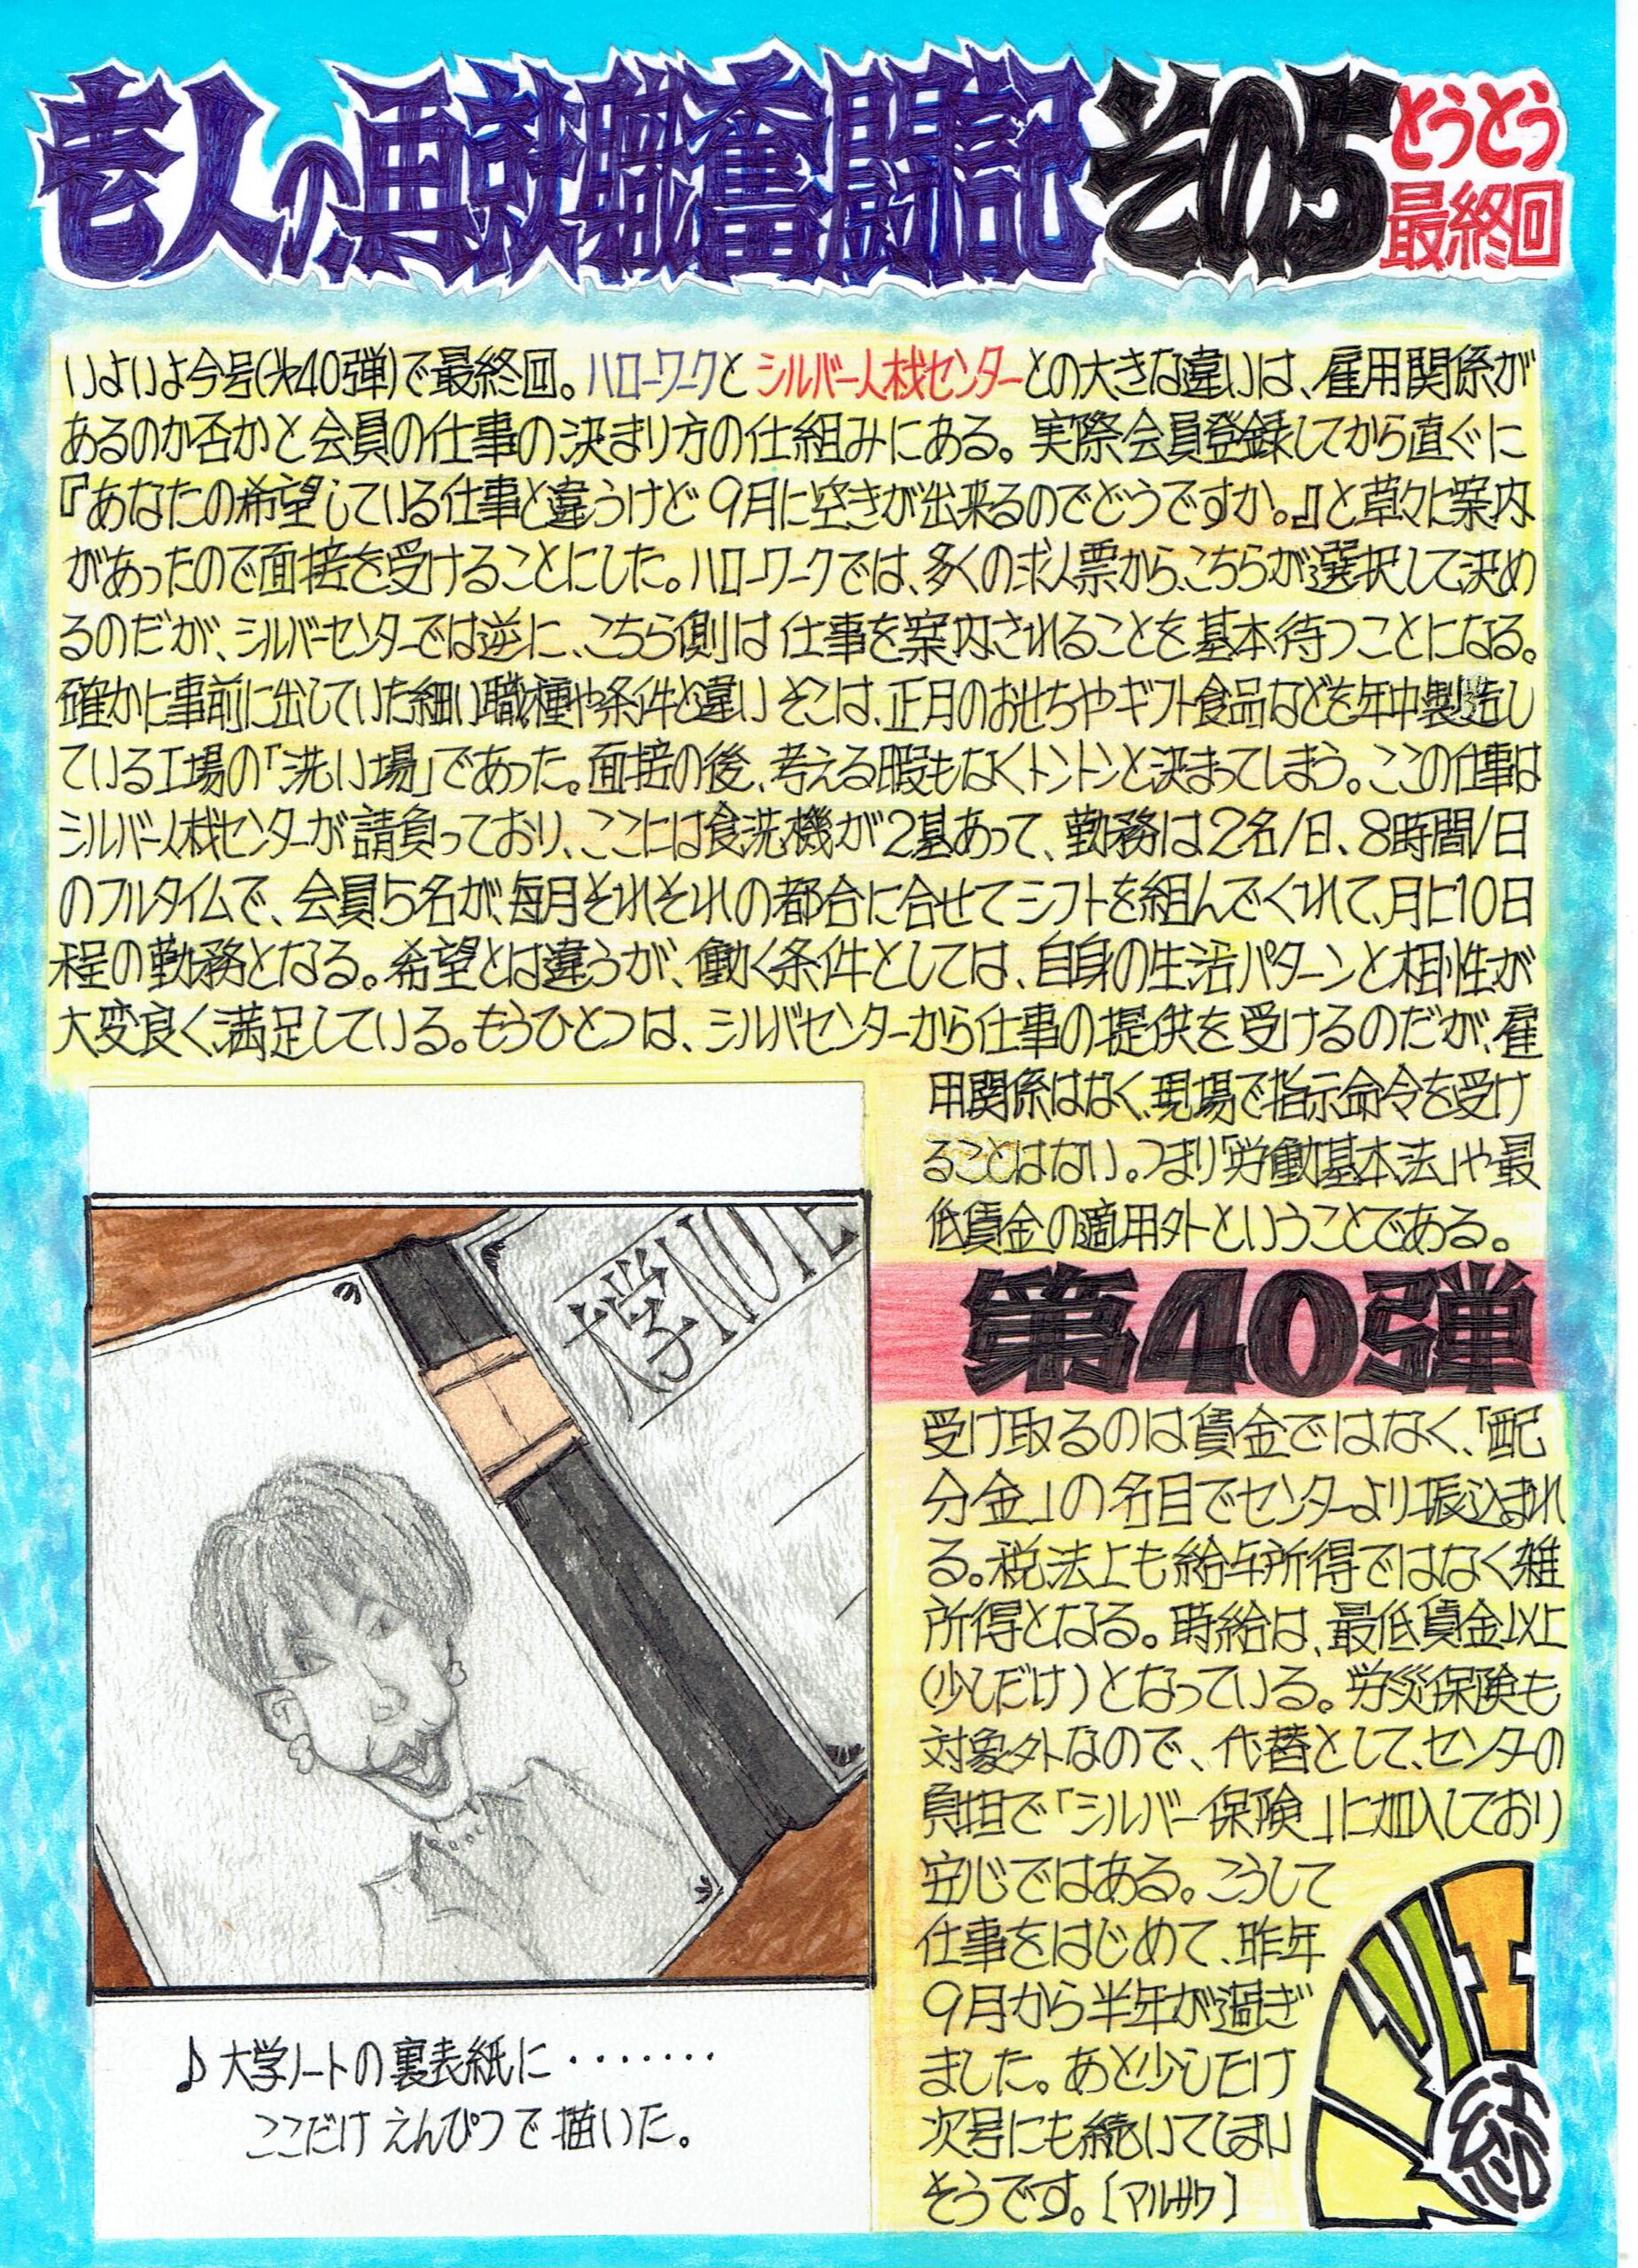 老人の再就職奮闘記その5
とうとう
最終回
いよいよ今号(才40弾)で最終回。ハローワークとシルバー人材センターとの大きな違いは、雇用関係が
あるのか否かと会員の仕事の決まり方の仕組みにある。実際会員登録してから直ぐに
『あなたの希望している仕事と違うけど9月に空きが出来るのでどうですか。』と草々に案内
があったので面接を受けることにした。ハローワークでは、多くの求人票から、こちらが選択して決め
るのだが、シルバーセンターでは逆に、こちら側は仕事を案内されることを基本待つことになる。
確かに事前に出していた細い職種や条件と違いそこは、正月のおせちやギフト食品などを年中製造し
ている工場の「洗い場」であった。面接の後、考える暇もなくトントンと決まってしまう。ここの仕事は
シルバー人材センターが請負っており、ここには食洗機が2基あって、勤務は2名/日、8時間/日
のフルタイムで、会員5名が、毎月それぞれの都合に合せてシフトを組んでくれて、月に10日
程の勤務となる。希望とは違うが、働く条件としては、自身の生活パターンと相性が
大変良く満足している。もうひとつは、シルバセンターから仕事の提供を受けるのだが、雇
用関係はなく、現場で指示命令を受け
ることはない。つまり「労働基本法」や最
低賃金の適用外ということである。
第40弾
受け取るのは賃金ではなく、「配
分金」の名目でセンターより振込まれ
る。税法上も給与所得ではなく雑
所得となる。時給は、最低賃金以上
(少しだけ)となっている。労災保険も
対象外なので、代替として、センターの
負担で「シルバー保険」に加入しており
安心ではある。こうして
仕事をはじめて、昨年
9月から半年が過ぎ
ました。あと少しだけ
次号にも続いてしまい
そうです。[マルサワ]
大学NOTE
♪大学ノートの裏表紙に・・・・・・・
ここだけえんぴつで描いた。